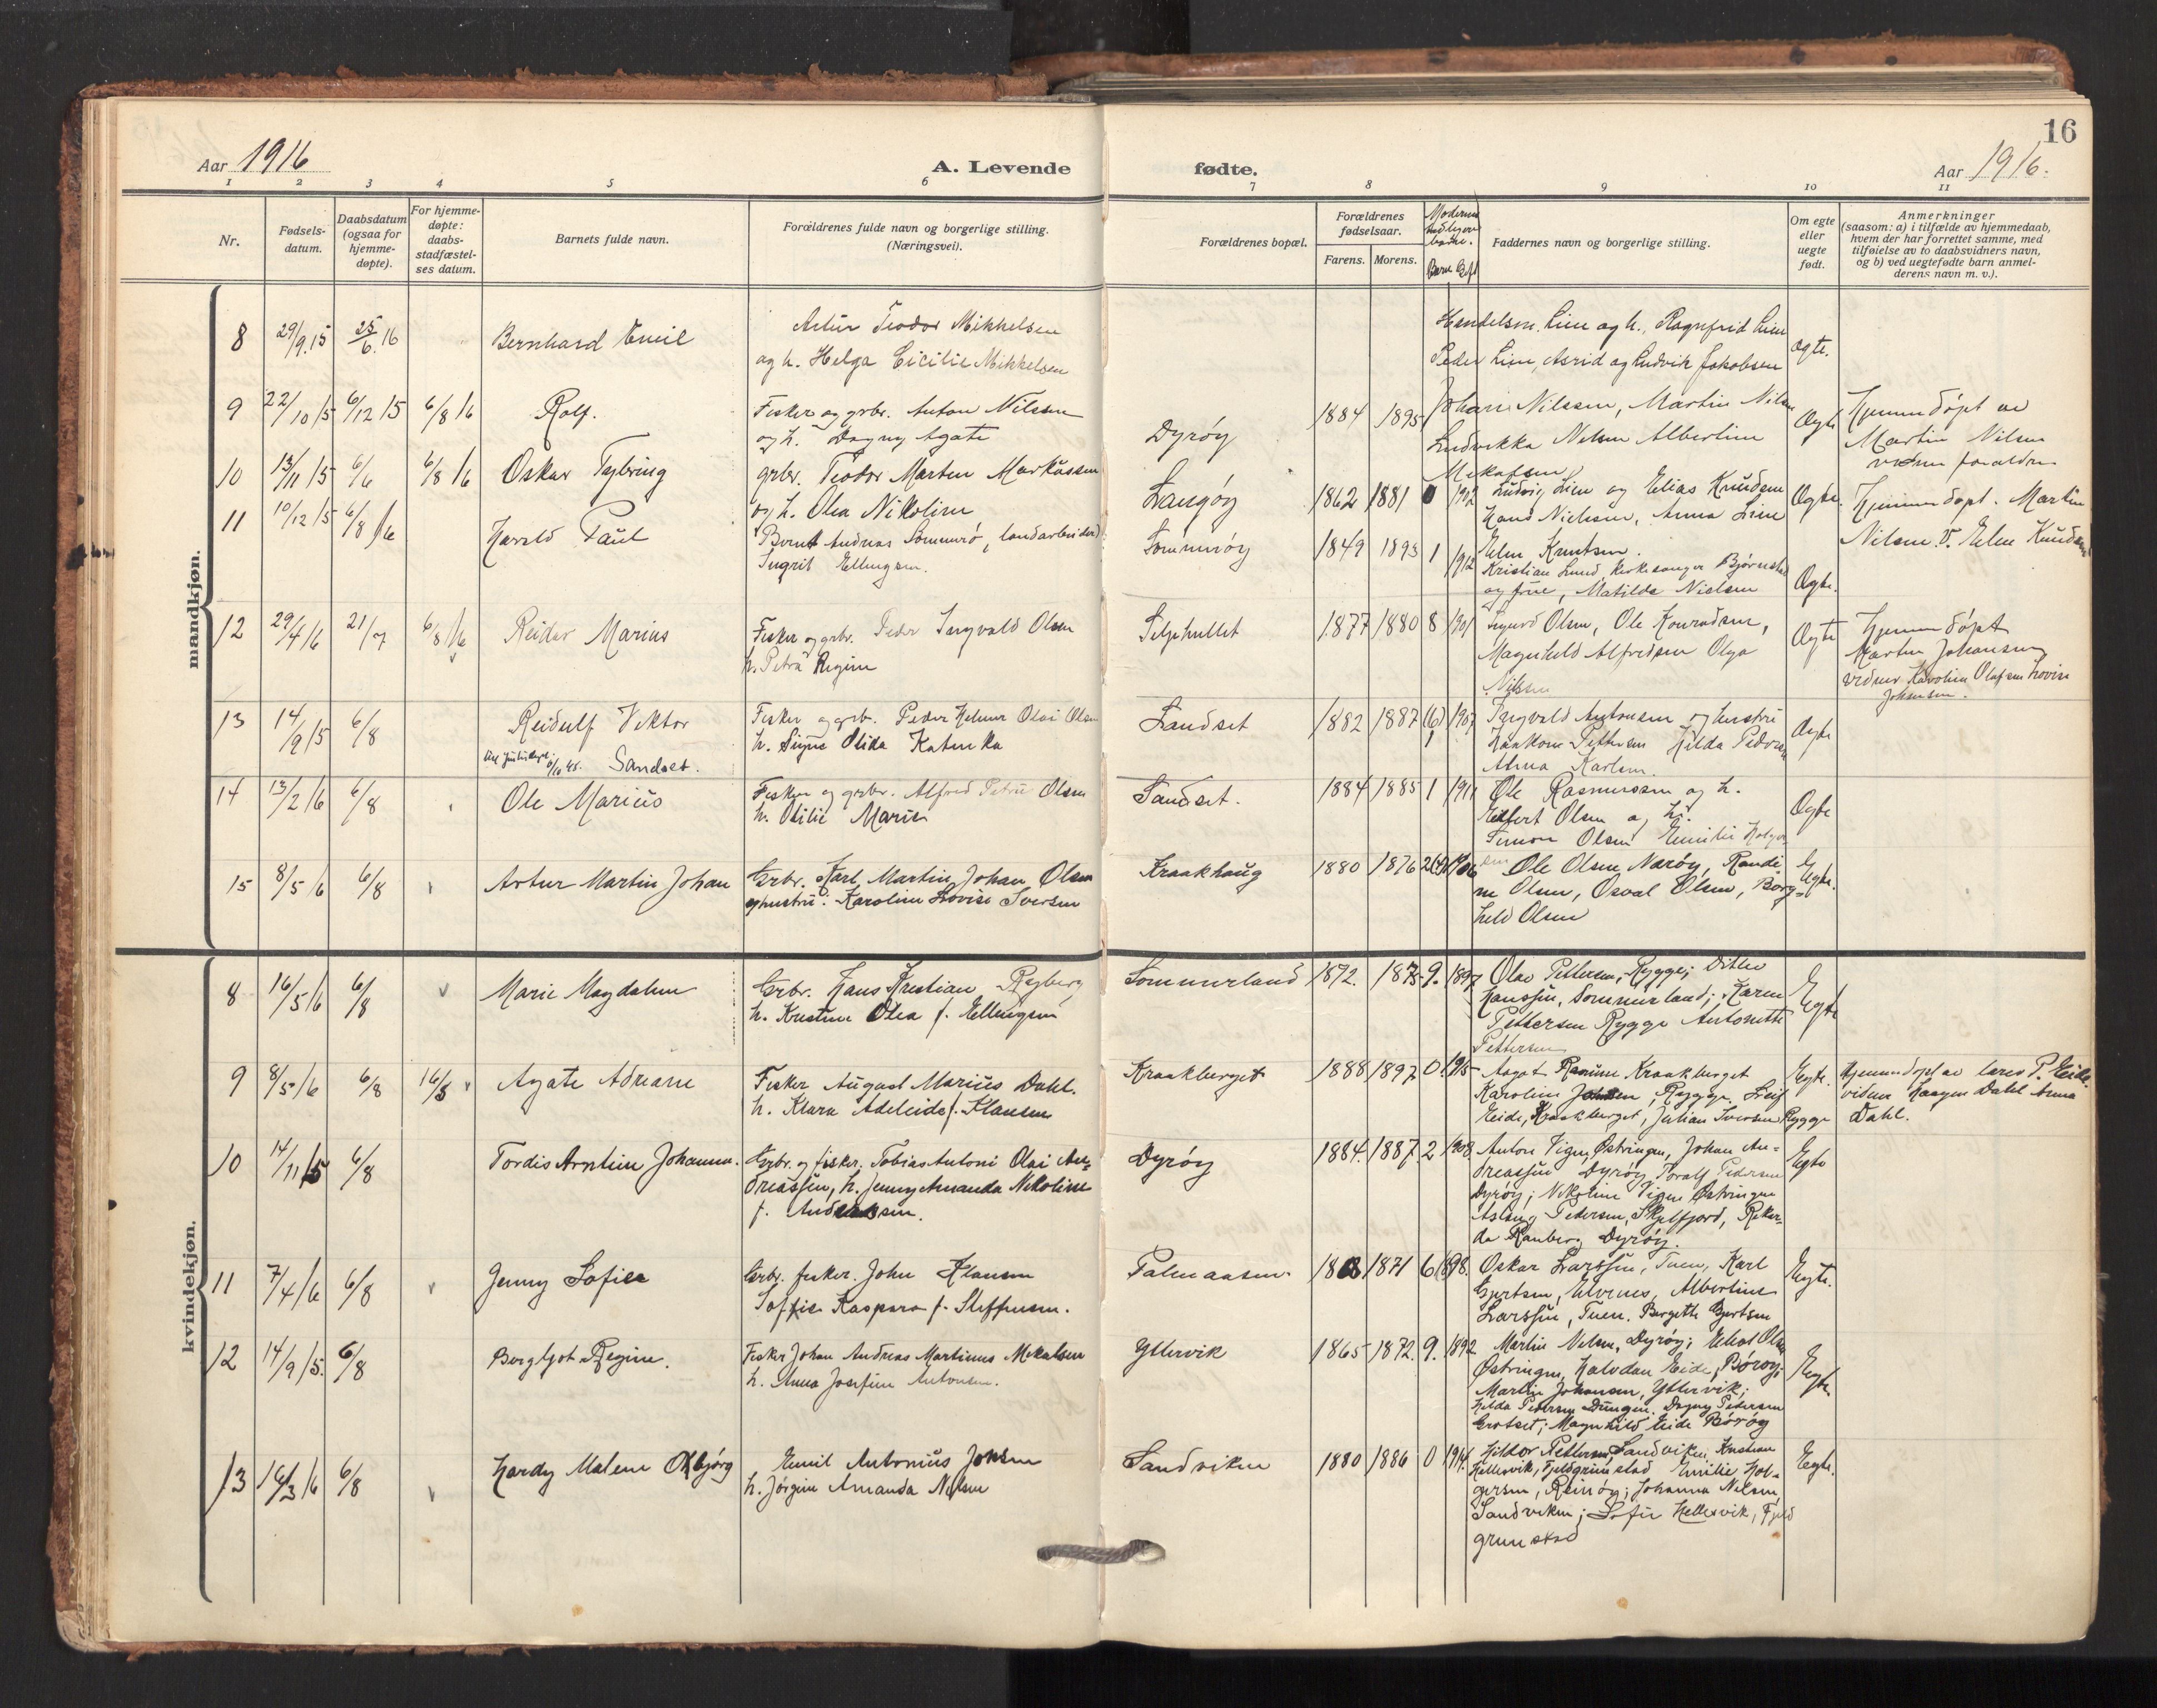 16
Aar 1916
A. Levende
fødte.
Aar 1916.
1 2 3 4 5 6 7 8 9 10 11
Nr.
Fødsels-
datum.
Daabsdatum
(ogsaa for
hjemme-
døpte).
For hjemme-
døpte:
daabs-
stadfæstel-
ses datum.
Barnets fulde navn.
Forældrenes fulde navn og borgerlige stilling.
(Næringsvei).
Forældrenes bopæl.
Forældrenes
fødselsaar.
Farens. Morens.
Barn Gift
Faddernes navn og borgerlige stilling.
Om egte
eller
uegte
født.
Anmerkninger
(saasom: a) i tilfælde av hjemmedaab,
hvem der har forrettet samme, med
tilføielse av to daabsvidners navn,
og b) ved uegtefødte barn anmel-
derens navn m. v.).
mandkjøn.
8 29/9.15 25/6.16 Bernhard Emil
Artur Teodor Mikkelsen
og h. Helga Cicilie Mikkelsen
Lien og h. Ragnfrid Lien
Peder Lien, Astrid og Ludvik Jakobsen
9 22/10 15 6/12 15 6/8 16 Rolf.
Fisker og grbr. Anton Nilssen
og h. Dagny Agate
Dyrøy 1884 1895
Johan Nilssen, Martin Nilsen
Ludvikka Nilsen Albertine
Mikalsen
Ogte
Hjemmedøpt av
Martin Nilsen
10 13/11 15 6/6 6/8 16 Oskar Tybring
grbr. Teodor Marten Markussen
og h. Olea Nikoline
Langøy 1862 1881 0 1902
Ludvig Lien og Elias Knudsen
Hans Nielsen, Anna Lien
Elen Knutsen.
Ogte
Hjemmedøpt. Martin
Nilsen. V. Elen Knudsen
11 10/12 15 6/8 16 Harald Paul
Bernt Andreas Sommerø, landarbeider
Ingrit Ellingsen.
Sommerøy 1849 1893 1 1912
Kristian Lund, kirkesanger Bjørnstad
og frue, Matilde Nielsen
Ogte.
12 29/4 16 21/7 6/8 16 Reidar Marius
Fisker og grbr. Peder Ingvald Olsen
h. Petra Regine
1877 1880 8
Sigurd Olsen, Ole Konradsen,
Magnhild Alfredsen Olga
Nilsen
Ogte
Hjemmedøpt
Martin Johansen
vidner Karoline Olafsen Lovise
Johansen.
13 14/9 15 6/8 Reidulf Viktor
Sandset.
Fisker og grb. Peder Helmer Olai Olsen
h. Signe Olida Katinka
Sandset 1882 1887 (6) 1 1907
Ingvald Antonsen og hustru
Haakon Pettersen Hilda Pedersen
Alma Karlsen.
Ogte
14 13/2 16 6/8 Ole Marius
Fisker og grbr. Alfred Petrus Olsen
h. Otilie Marie
Sandset. 1884 1885 1 1911
Ole Rasmussen og h.
Edfert Olsen og h.
Simon Olsen Emilie Holger
sen
Ogte
15 8/5 16 6/8 Artur Martin Johan
Grbr. Karl Martin Johan Olsen
og hustru. Karoline Lovise Iversen
Kraakhaug 1880 1876 1906
Ole Olsen Nærøy, Randi-
ne Olsen, Osval Olsen, Borg-
hild Olsen
Egte.
kvindekjøn.
8 16/5 16 6/8 Marie Magdalene
Grbr. Hans Kristian Rygberg
h. Kristine Olea f. Ellingsen
Sommerland 1872. 1875 9. 1897
Olav Pettersen, Rygge; Ditlev
Hanssen, Sommerland; Karen
Pettersen Rygge Antonette
Pettersen
Egte
9 8/5 16 6/8 16/5 Agate Adriane
Fisker August Marius Dahl.
h. Klara Adeleide f. Klausen
Kraakberget 1888 1897 0. 1915
Aagot Rasmine Kraakberget
Karoline Jensen, Rygge, Leif
Eide, Kraakberget, Julian Iversen Rygge
Egte.
Hjemmedøpt av lærer P. Eide.
vidner Haagen Dahl Anna
Dahl.
10 14/11 15 6/8 Tordis Arntine Johanna.
Grbr. og fisker. Tobias Antoni Olai An-
dreassen, h. Jenny Amanda Nikoline
f. Andreassen.
Dyrøy 1884. 1887. 2 1908
Anton Vigen, Østringen, Johan An-
dreassen Dyrøy, Toralf Pedersen
Dyrøy; Nikoline Vigen Østringen
Aslaug Pedersen, Skjelfjord, Rikar-
da Ranberg Dyrøy.
Egte
11 7/4 16 6/8 Jenny Sofie
Grbr. fisker. John Klausen
Soffie Kaspara f. Steffensen.
Palmaasen 1868 1871 6 1898.
Oskar Larssen, Tuen, Karl
Gjertsen, Alvenes, Albertine
Larssen, Tuen. Bergette Gjertsen
Egte.
12 14/9 15. 6/8 Bergljot Regine.
Fisker Johan Andreas Martinus Mikalsen
h. Anna Josefine Antonsen.
Yttervik 1865 1872. 9. 1892
Martin Nilsen, Dyrøy; Olsen
Østringen, Halvdan Eide, Børøy;
Martin Johansen, Yttervik;
Hilda Pedersen Dungen. Dagny Petersen
Grotset; Magnhild Eide Børøy
Egte.
13 16/3 16 6/8 Hardy Malene Oxbjørg
Emil Antonius Jonsen
h. Jørgine Amanda Nilsen
Sandviken 1880 1886 0 1914.
Hildor Pettersen, Sandviken, Kristian
Hellesvik, Fjeldgrunstad Emilie Hol-
gersen, Reinøy; Johanna Nilsen,
Sandviken; Sofie Hellesvik, Fjeld
grunstad
Egte.